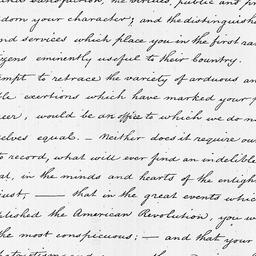 the virtues, public and pr
dorn your character; and the distinguish
nd services which place you in the first ra
zens eminently useful to their Country.
empt to retrace the variety of arduous an
ble exertions which have marked your
eer, would be an office to which we do n
selves equal. — Neither does it require ou
to record, what will ever find an indelible
al, in the minds and hearts of the enligh
just; — — that in the great events which
plished the American Revolution, you w
the most conspicuous; — and that your